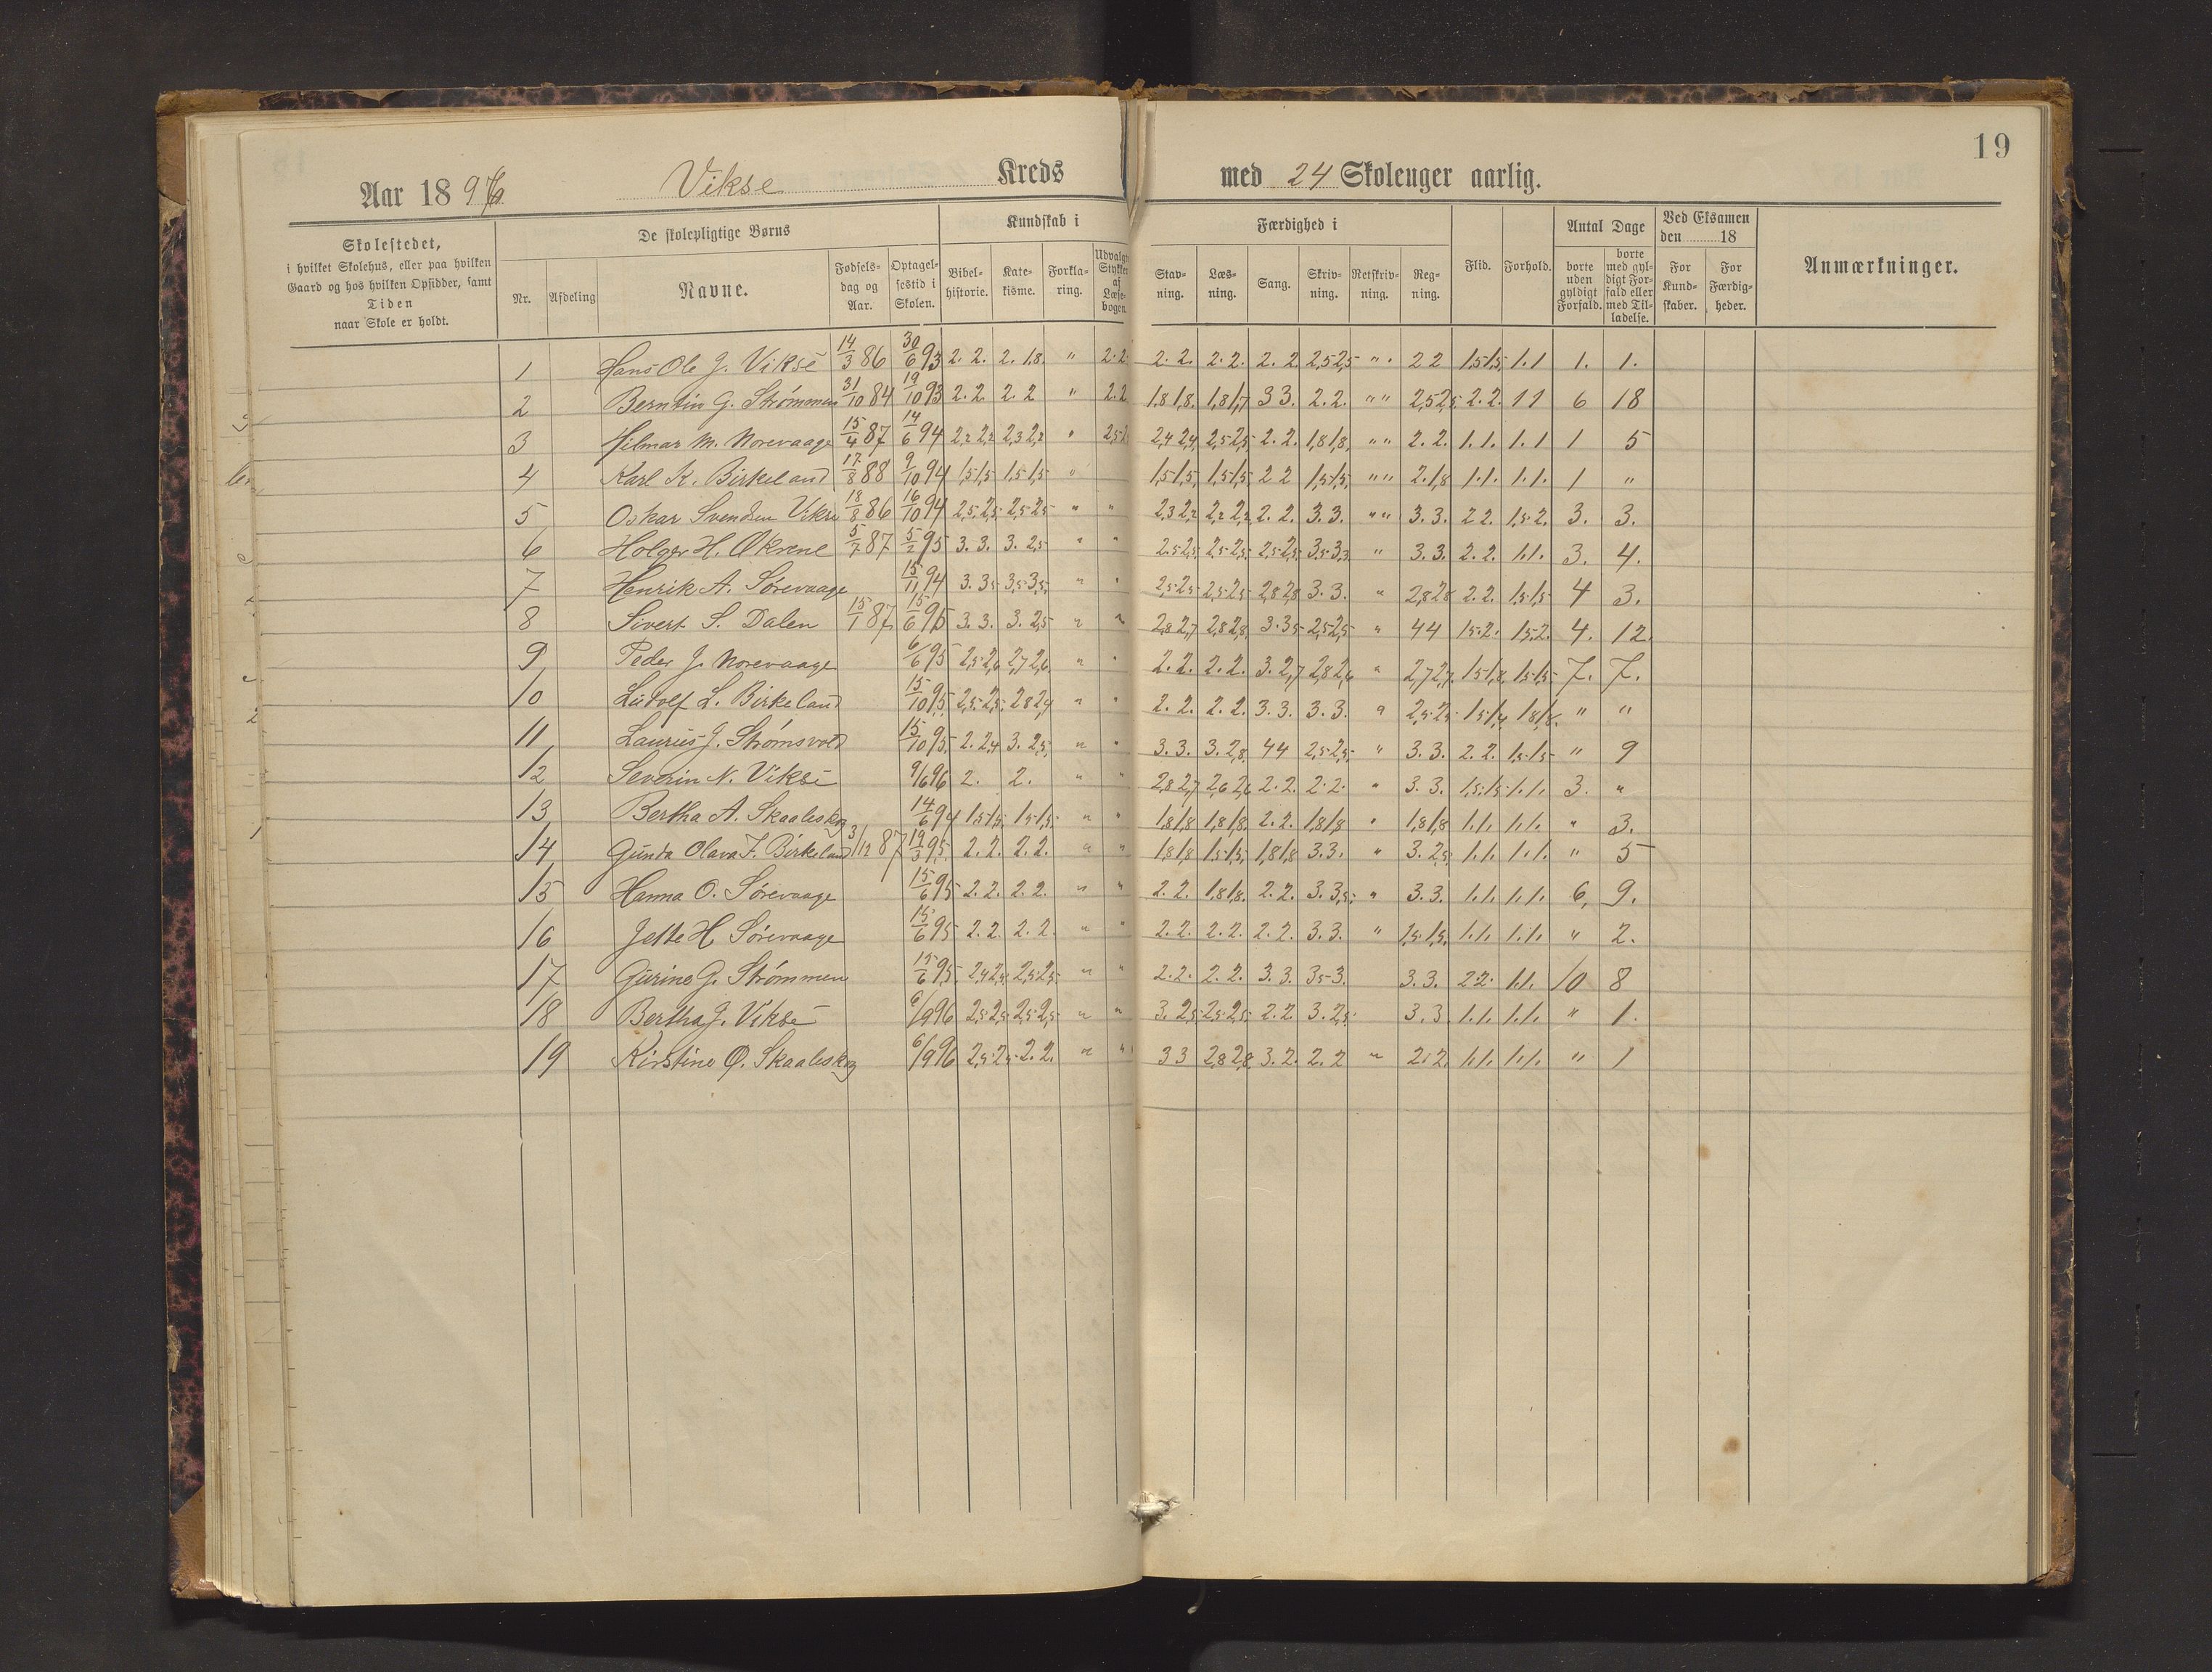 19
Aar 1896 Vikse Kreds med 24 Skoleuger aarlig.
Skolestedet, i hvilket Skolehus, eller paa hvilken Gaard og hos hvilken Opsidder, samt Tiden naar Skole er holdt.
De skolepligtige Børns
Nr. Afdeling Navne. Fødselsdag og Aar. Optagelsestid i Skolen.
Kundskab i
Bibelhistorie. Katekisme. Forklaring. Udvalgte Stykker af Læsebogen.
Færdighed i
Stavning. Læsning. Sang. Skrivning. Retskrivning. Regning.
Flid. Forhold.
Antal Dage
borte uden gyldigt Forfald. borte med gyldigt Forfald eller med Tilladelse.
Ved Eksamen den 18
For Kundskaber. For Færdigheder.
Anmærkninger.
1 Hans Ole J. Vikse 14/3 86 30/6 93 2. 2. 2. 1.8. " 2.2. 2.2. 2.2. 2.2. 2,5 2,5 " " 2 2 1,5 1,5 1.1 1. 1.
2 Berntin G. Strømmen 31/10 84 19/10 93 2.2. 2.2 " 2.2 1,8 1,8. 1,8 1,7 3 3. 2.2. " " 2,5 2,5 2.2. 1 1 6 18
3 Hilmar M. Norevaage 15/4 87 14/6 94 2,2 2,2 2,3 2,2 " 2,5 2,4 2,4 2,5 2,5 2.2. 1,8 1,8 " " 2.2. 1.1. 1.1 1 5
4 Karl K. Birkeland 17/8 88 9/10 94 1,5 1,5 1,5 1,5 " 1,5 1,5 1,5 1,5 2 2 1,5 1,5 " " 2. 1,8 1.1. 1.1. 1 "
5 Oskar Svendsen Vikse 18/8 86 16/10 94 2,5 2,5 2,5 2,5 " " 2,3 2,2 2,2 2,2 2.2. 3.3. " " 3.3. 2 2. 1,5 2. 3. 3.
6 Holger H. Økrene 5/7 87 5/2 95 3.3. 3. 2,5 " " 2,5 2,5 2,5 2,5 2,5 2,5 3,5 3,3 " 3.3. 2.2. 1.1. 3. 4.
7 Henrik A. Sørevaage 15/11 94 3. 3,5 3,5 3,5 " " 2,5 2,5 2,5 2,5 2,8 2,8 3.3. " 2,8 2,8 2.2. 1,5 1,5 4 3.
8 Sivert S. Dalen 15/1 87 15/6 95 3.3. 3. 2,5 " " 2,8 2,7 2,8 2,8 3. 3,5 2,5 2,5 " 4 4 1,5 2. 1,5 2. 4. 12.
9 Peder J. Norevaage 6/6 95 2,5 2,6 2,7 2,6 " " 2.2. 2.2. 3. 2,7 2,8 2,6 " 2,7 2,7 1,5 1,8 1,5 1,5 7. 7.
10 Ludolf L. Birkeland 15/10 95 2,5 2,5 2,8 2,4 " " 2.2. 2.2. 3.3. 3.3. " 2,5 2,5 1,5 1,4 1,8 1,8 " "
11 Laurius J. Strømsvold 15/10 95 2. 2,4 3. 2,5 " " 3.3. 3. 2,8 4 4 2,5 2,5 " 3.3. 2.2. 1,5 1,5 " 9
12 Severin N. Vikse 9/6 96 2. 2. " " 2,8 2,7 2,6 2,6 2.2. 2.2. " 3.3. 1,5 1,5 1.1. 3. "
13 Bertha A. Skaaleskog 14/6 94 1,5 1,5 1,5 1,5 " " 1,8 1,8 1,8 1,8 2.2. 1,8 1,8 " 1,8 1,8 1.1. 1.1. " 3.
14 Gunda Olava J. Birkeland 3/12 87 19/3 95 2.2. 2.2. " " 1,8 1,8 1,5 1,5 1,8 1,8 3.3. " 3. 2,5 1.1. 1.1. " 5
15 Hanna O. Sørevaage 15/6 95 2.2. 2.2. " " 2.2. 1,8 1,8. 2.2. 3. 3,5 " 3.3. 1.1. 1.1. 6. 9.
16 Jette H. Sørevaage 15/6 95 2.2. 2.2. " " 2.2. 2.2. 2.2. 3.3. " 1,5 1,5 1.1. 1.1. " 2.
17 Gurine G. Strømmen 15/6 95 2,4 2,5 2,5 2,5 " " 2.2. 2.2. 3.3. 3,5 3. 3.3. 2 2. 1.1. 10 8
18 Bertha J. Vikse 6/9 96 2,5 2,5 2,5 2,5 " " 3. 2,5 2,5 2,5 2.2. 3. 2,5 3.3 1.1. 1.1. " 1.
19 Kirstine O. Skaaleskog 6/9 96 2,5 2,5 2.2. " " 3 3 2,8 2,8 3.2. 2.2 " 2.2. 1.1. 1.1. " 1